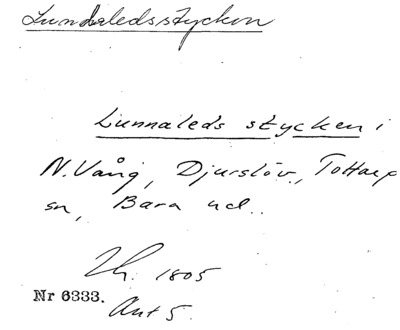 Lundaledsstycken
Lunnaleds stycken i
N. Vång, Djurslöv, Tottarp
sn, Bara hd.
1805
Nr 6333.
Ant 5.